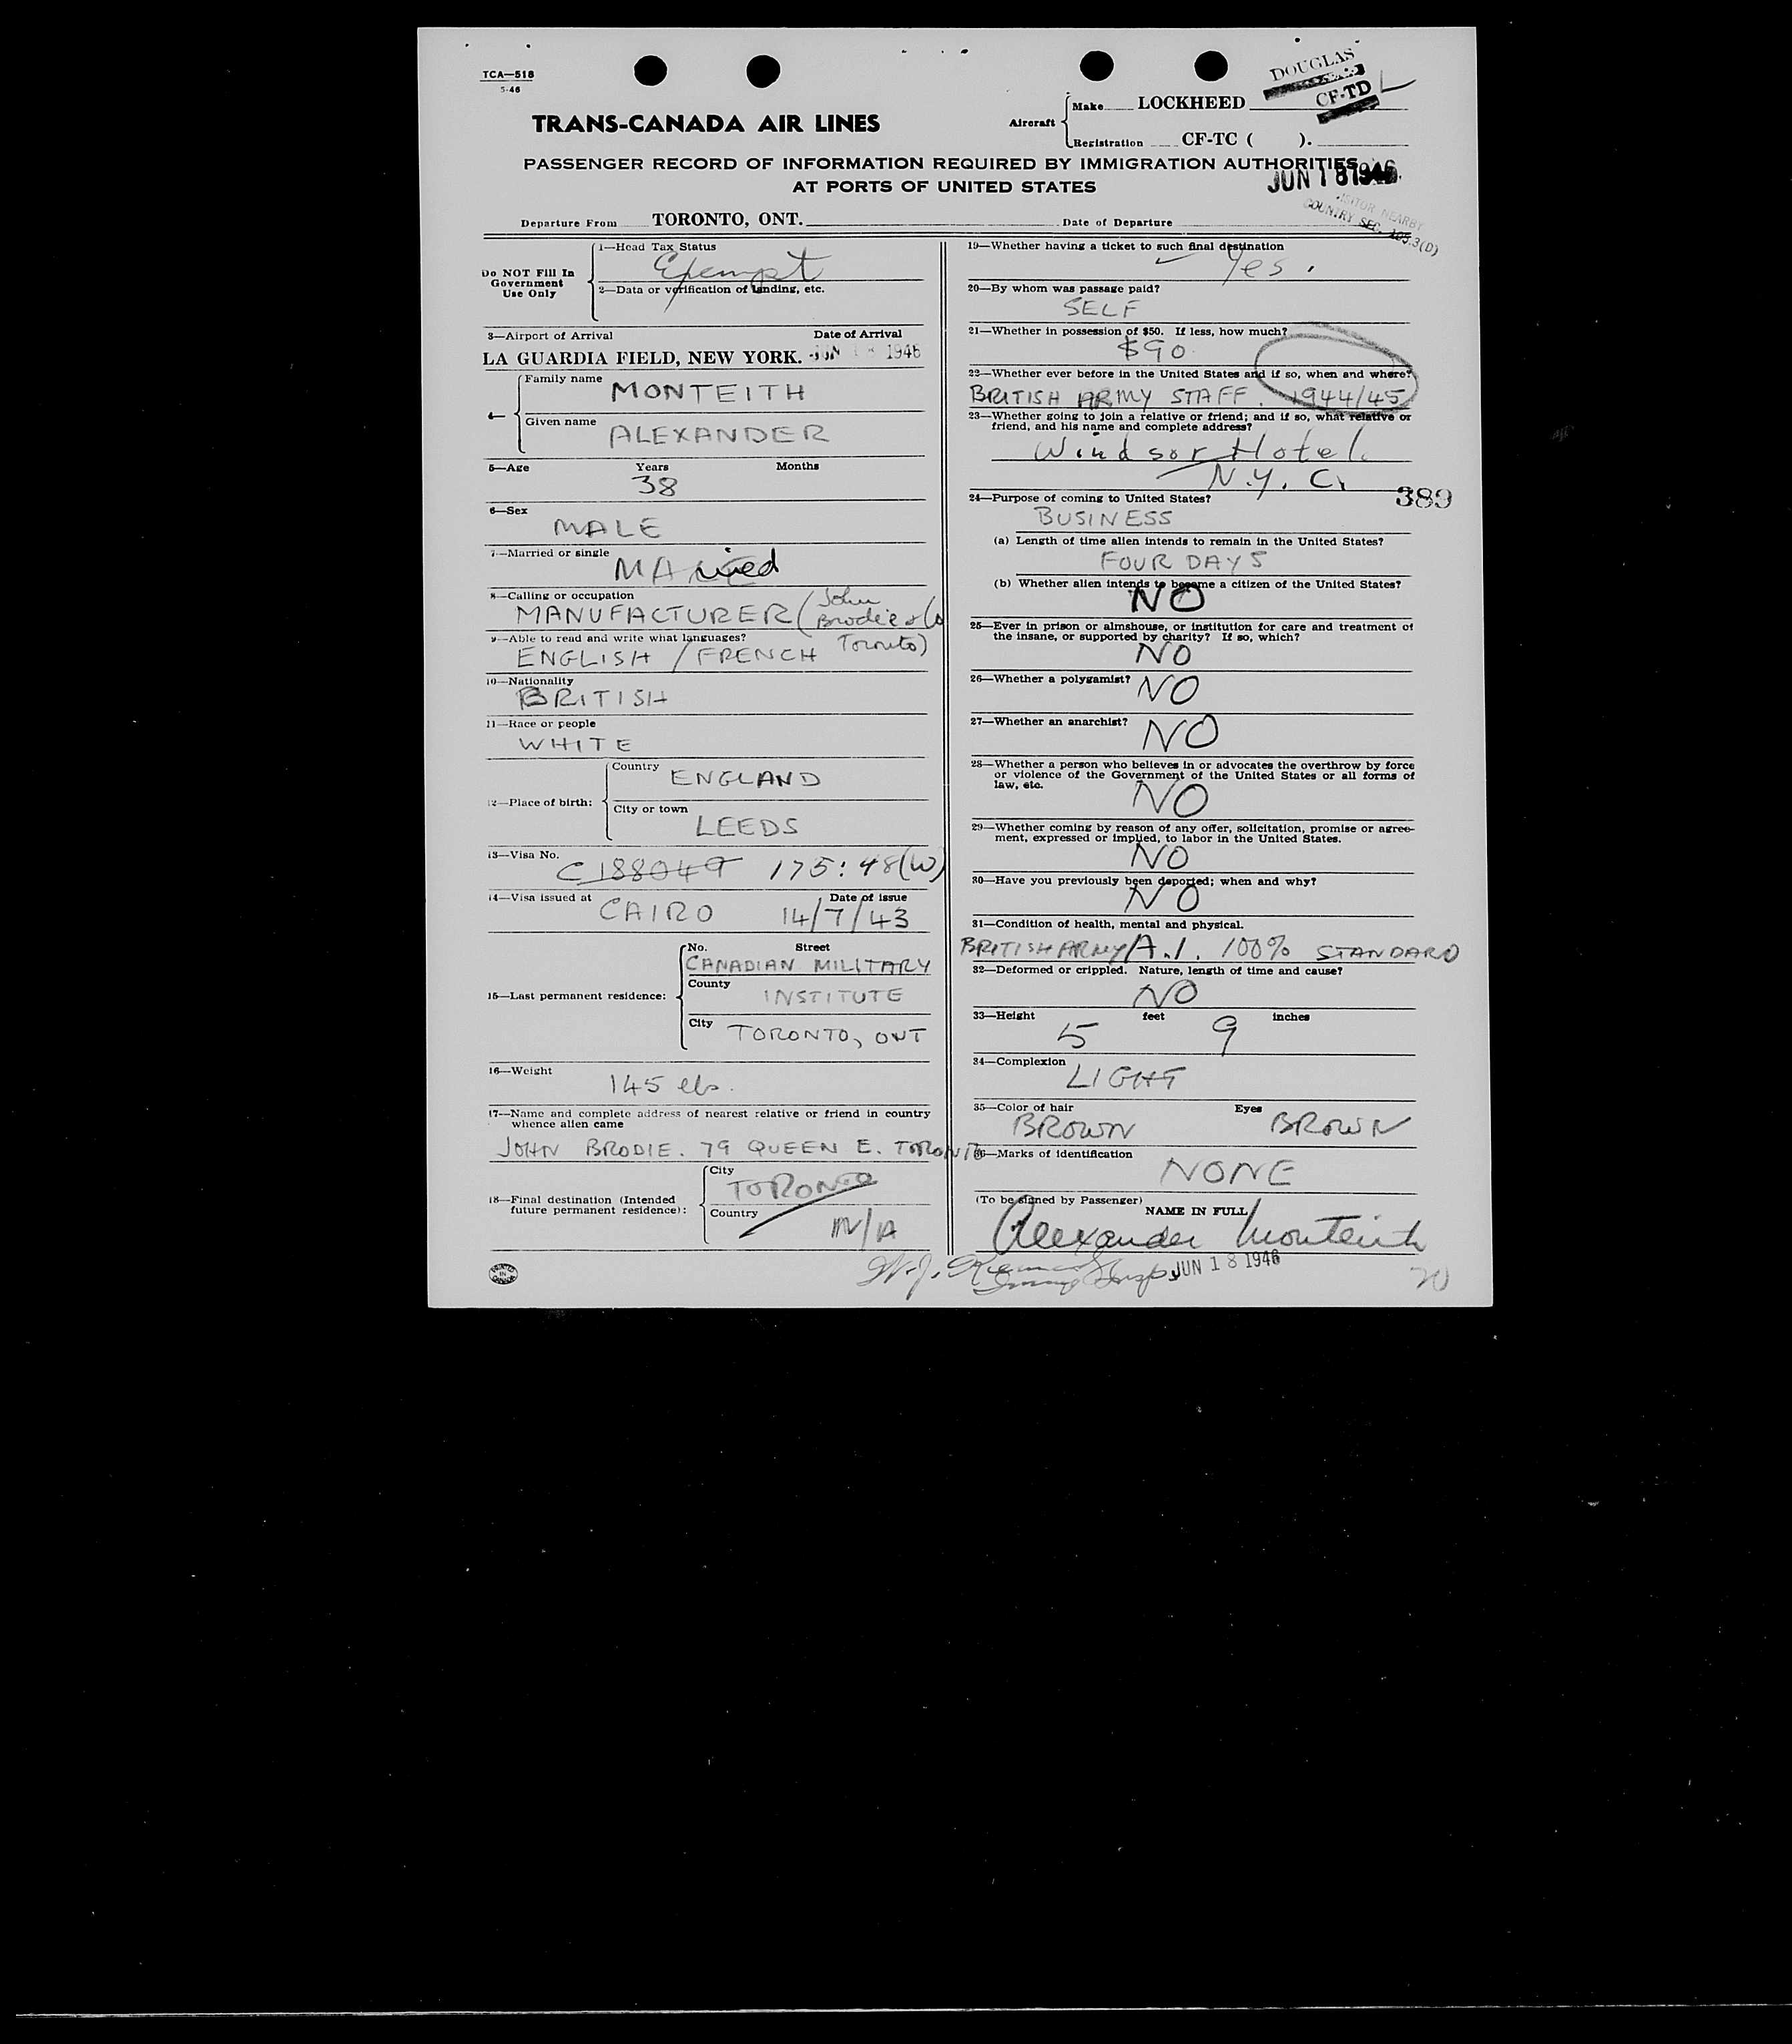 TCA—518
5-46
TRANS-CANADA AIR LINES
Aircraft
Make LOCKHEED
DOUGLAS
CF-TD
Registration CF-TC ( ).
PASSENGER RECORD OF INFORMATION REQUIRED BY IMMIGRATION AUTHORITIES
AT PORTS OF UNITED STATES
JUN 18 1946
VISITOR NEARBY
COUNTRY SEC. 105.3(D)
Departure From TORONTO, ONT. Date of Departure
Do NOT Fill In
Government
Use Only
1—Head Tax Status
Exempt
2—Data or verification of landing, etc.
3—Airport of Arrival Date of Arrival
LA GUARDIA FIELD, NEW YORK. JUN 18 1946
4—
Family name MONTEITH
Given name ALEXANDER
5—Age Years Months
38
6—Sex
MALE
7—Married or single
MArried
8—Calling or occupation
MANUFACTURER (John
Brodie & Co
Toronto)
9—Able to read and write what languages?
ENGLISH / FRENCH
10—Nationality
BRITISH
11—Race or people
WHITE
12—Place of birth:
Country ENGLAND
City or town
LEEDS
13—Visa No.
C 188049 175:48(W)
14—Visa issued at Date of issue
CAIRO 14/7/43
15—Last permanent residence:
No. Street
CANADIAN MILITARY
County
INSTITUTE
City
TORONTO, ONT
16—Weight
145 lbs.
17—Name and complete address of nearest relative or friend in country
whence alien came
JOHN BRODIE. 79 QUEEN E. TORONTO
18—Final destination (Intended
future permanent residence):
City
TORONTO
Country
N/A
PRINTED
IN
CANADA
19—Whether having a ticket to such final destination
Yes.
20—By whom was passage paid?
SELF
21—Whether in possession of $50. If less, how much?
$90.
22—Whether ever before in the United States and if so, when and where?
BRITISH ARMY STAFF. 1944/45
23—Whether going to join a relative or friend; and if so, what relative or
friend, and his name and complete address?
Windsor Hotel.
N.Y.C.
389
24—Purpose of coming to United States?
BUSINESS
(a) Length of time alien intends to remain in the United States?
FOUR DAYS
(b) Whether alien intends to become a citizen of the United States?
NO
25—Ever in prison or almshouse, or institution for care and treatment of
the insane, or supported by charity? If so, which?
NO
26—Whether a polygamist? NO
27—Whether an anarchist? NO
28—Whether a person who believes in or advocates the overthrow by force
or violence of the Government of the United States or all forms of
law, etc.
NO
29—Whether coming by reason of any offer, solicitation, promise or agree-
ment, expressed or implied, to labor in the United States.
NO
30—Have you previously been deported; when and why?
NO
31—Condition of health, mental and physical.
BRITISH ARMY/A.1. 100% STANDARD
32—Deformed or crippled. Nature, length of time and cause?
NO
33—Height feet inches
5 9
34—Complexion
LIGHT
35—Color of hair Eyes
BROWN BROWN
36—Marks of identification
NONE
(To be signed by Passenger)
NAME IN FULL
Alexander Monteith
JUN 18 1946
20